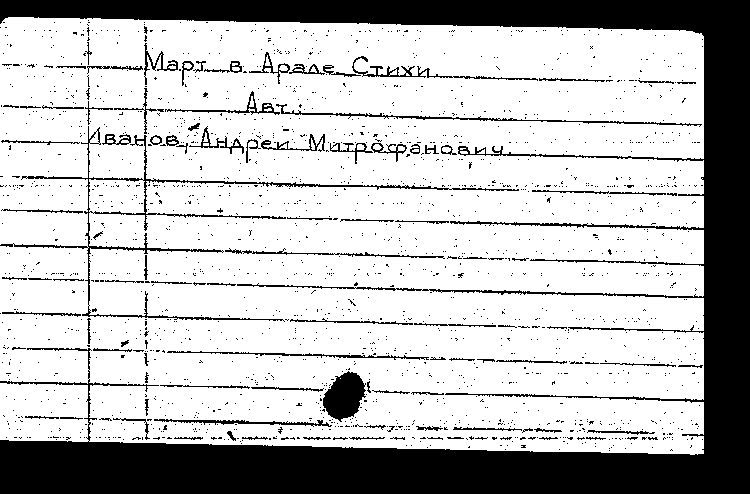 Март в Арале Стихи.
Авт.:
Иванов, Андрей Митрофанович.